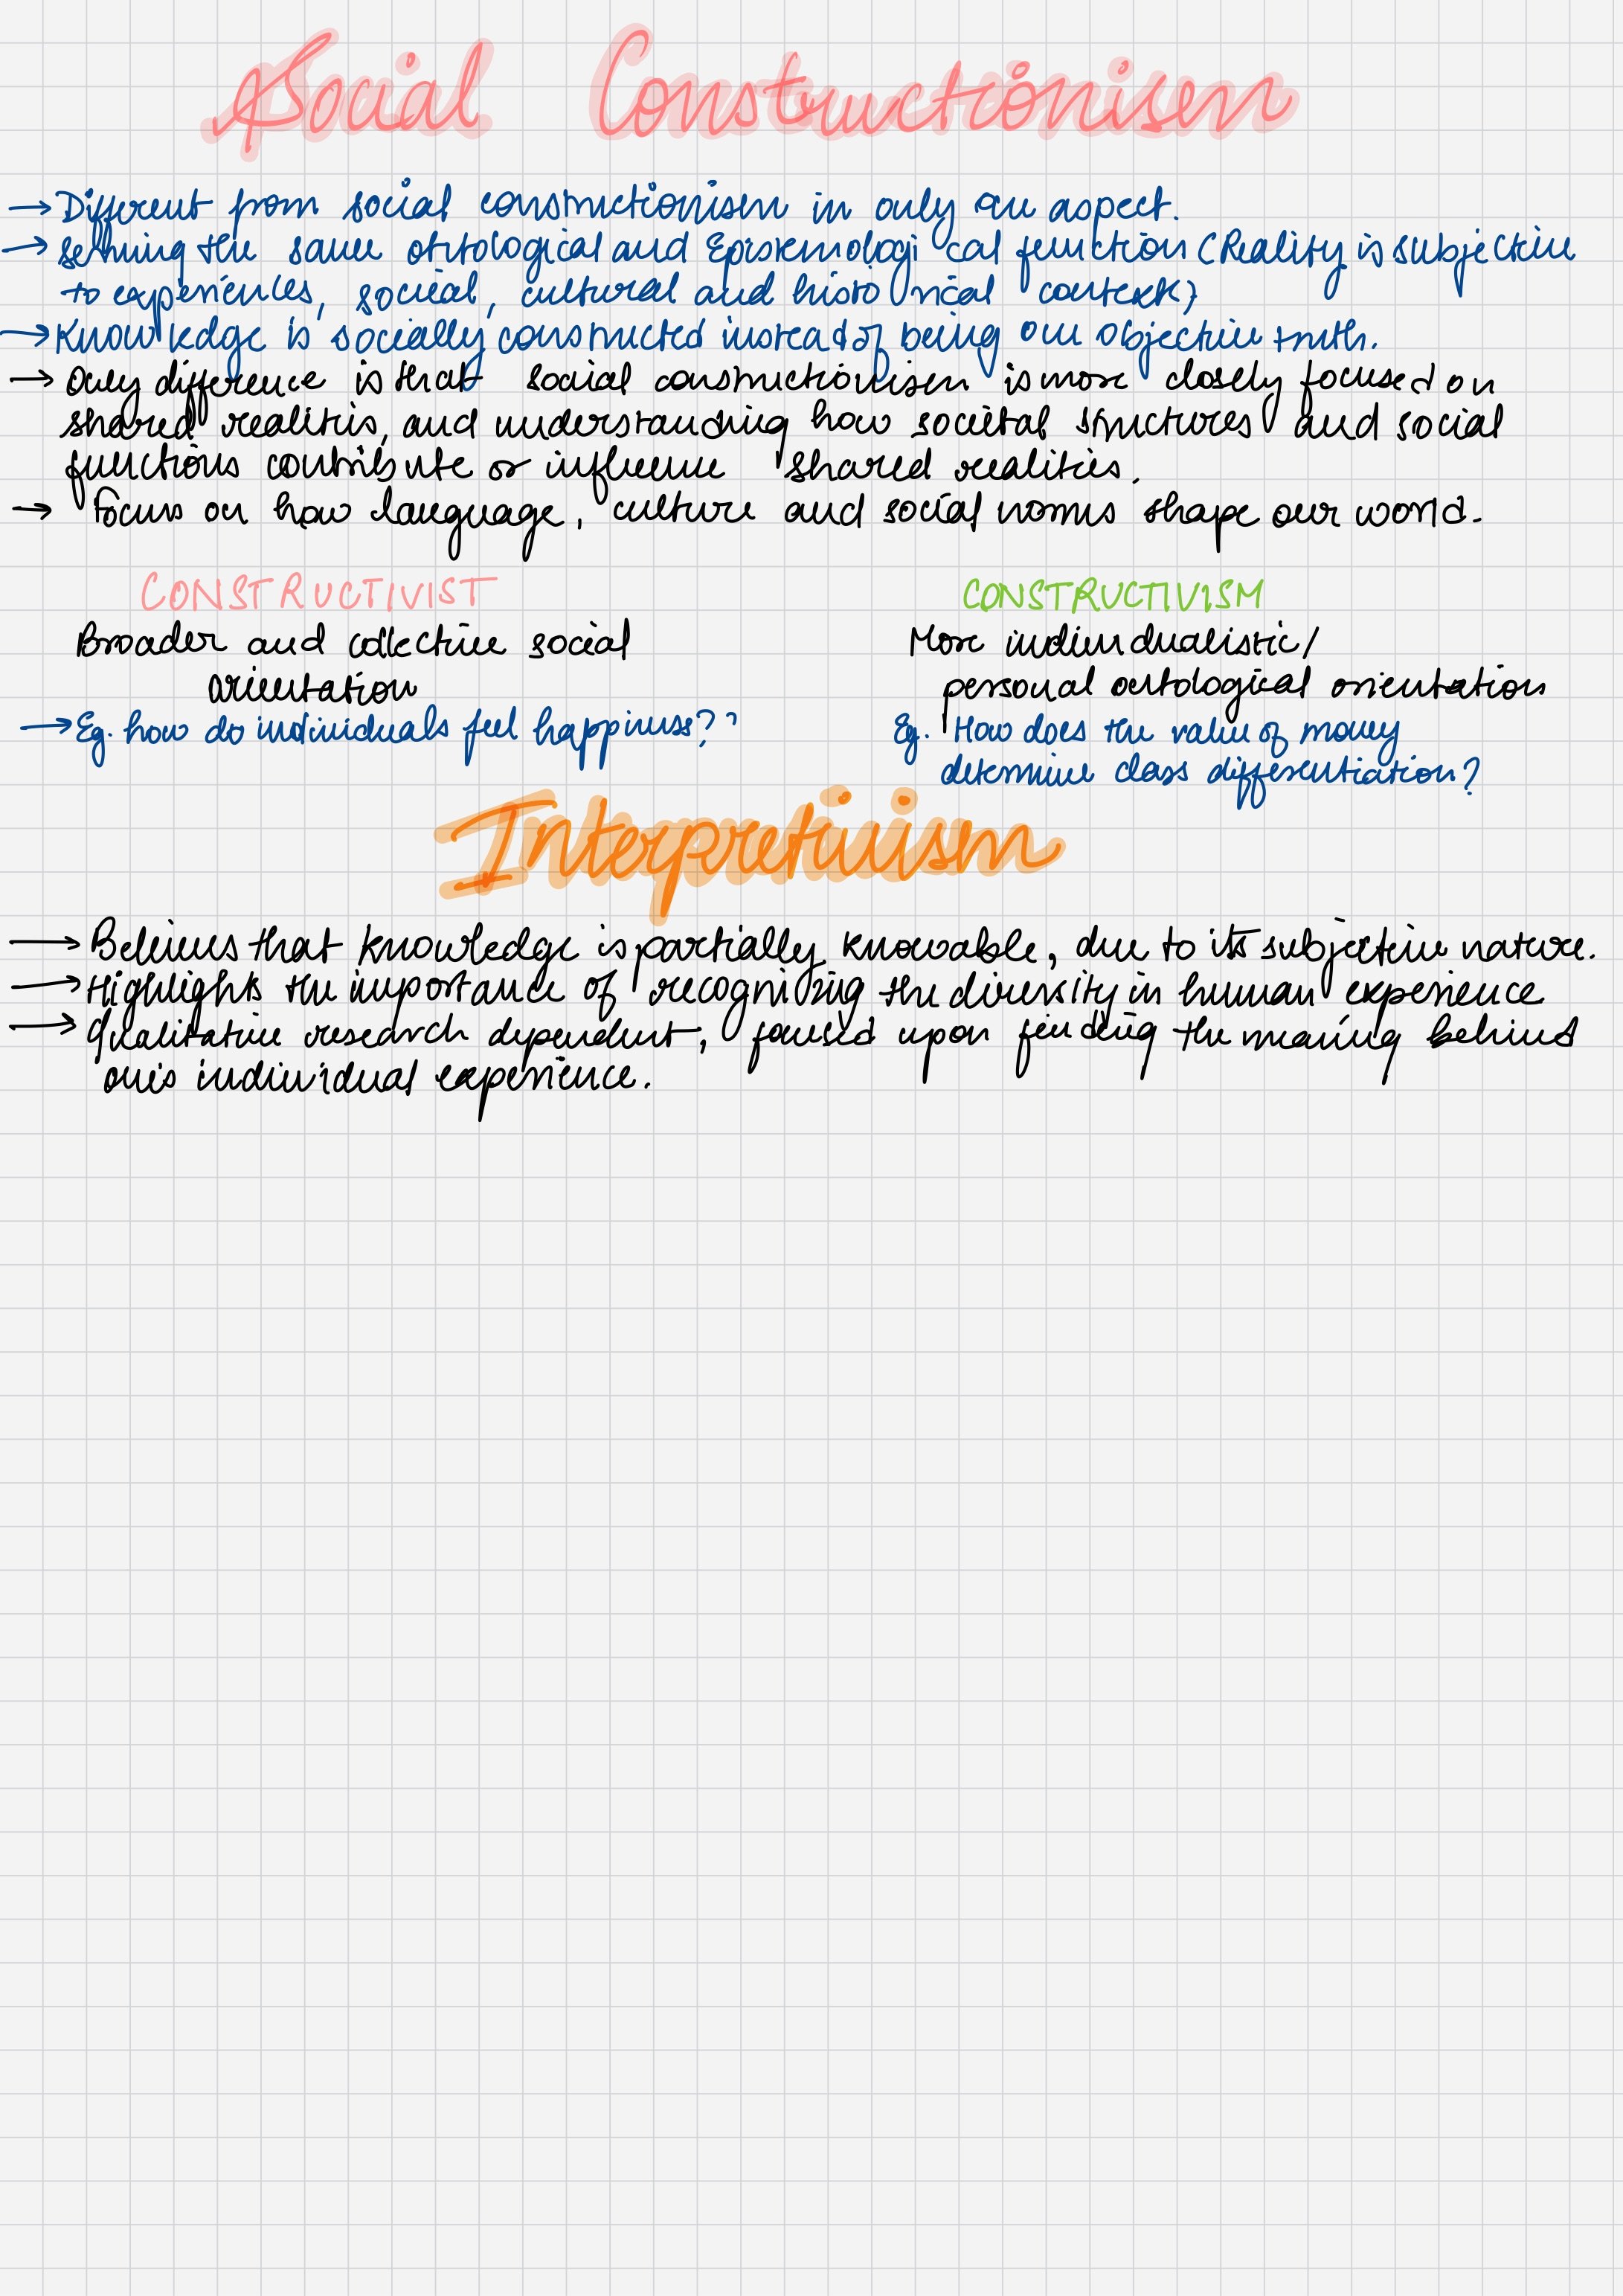 Social Constructionism
→ Different from social constructionism in only one aspect.
→ Serving the same ontological and Epistemological function (Reality is subjective
to experiences, social, cultural and historical context)
→ Knowledge is socially constructed instead of being one objective truth.
→ Only difference is that social constructionism is more closely focused on
shared realities, and understanding how societal structures and social
functions contribute or influence shared realities.
→ Focus on how language, culture and social norms shape our world.
CONSTRUCTIVIST
Broader and collective social
orientation
→ Eg. how do individuals feel happiness?
CONSTRUCTIVISM
More individualistic/
personal ontological orientation
Eg. How does the value of money
determine class differentiation?
Interpretivism
→ Believes that knowledge is partially knowable, due to its subjective nature.
→ Highlights the importance of recognizing the diversity in human experience
→ Qualitative research dependent, focused upon finding the meaning behind
one's individual experience.